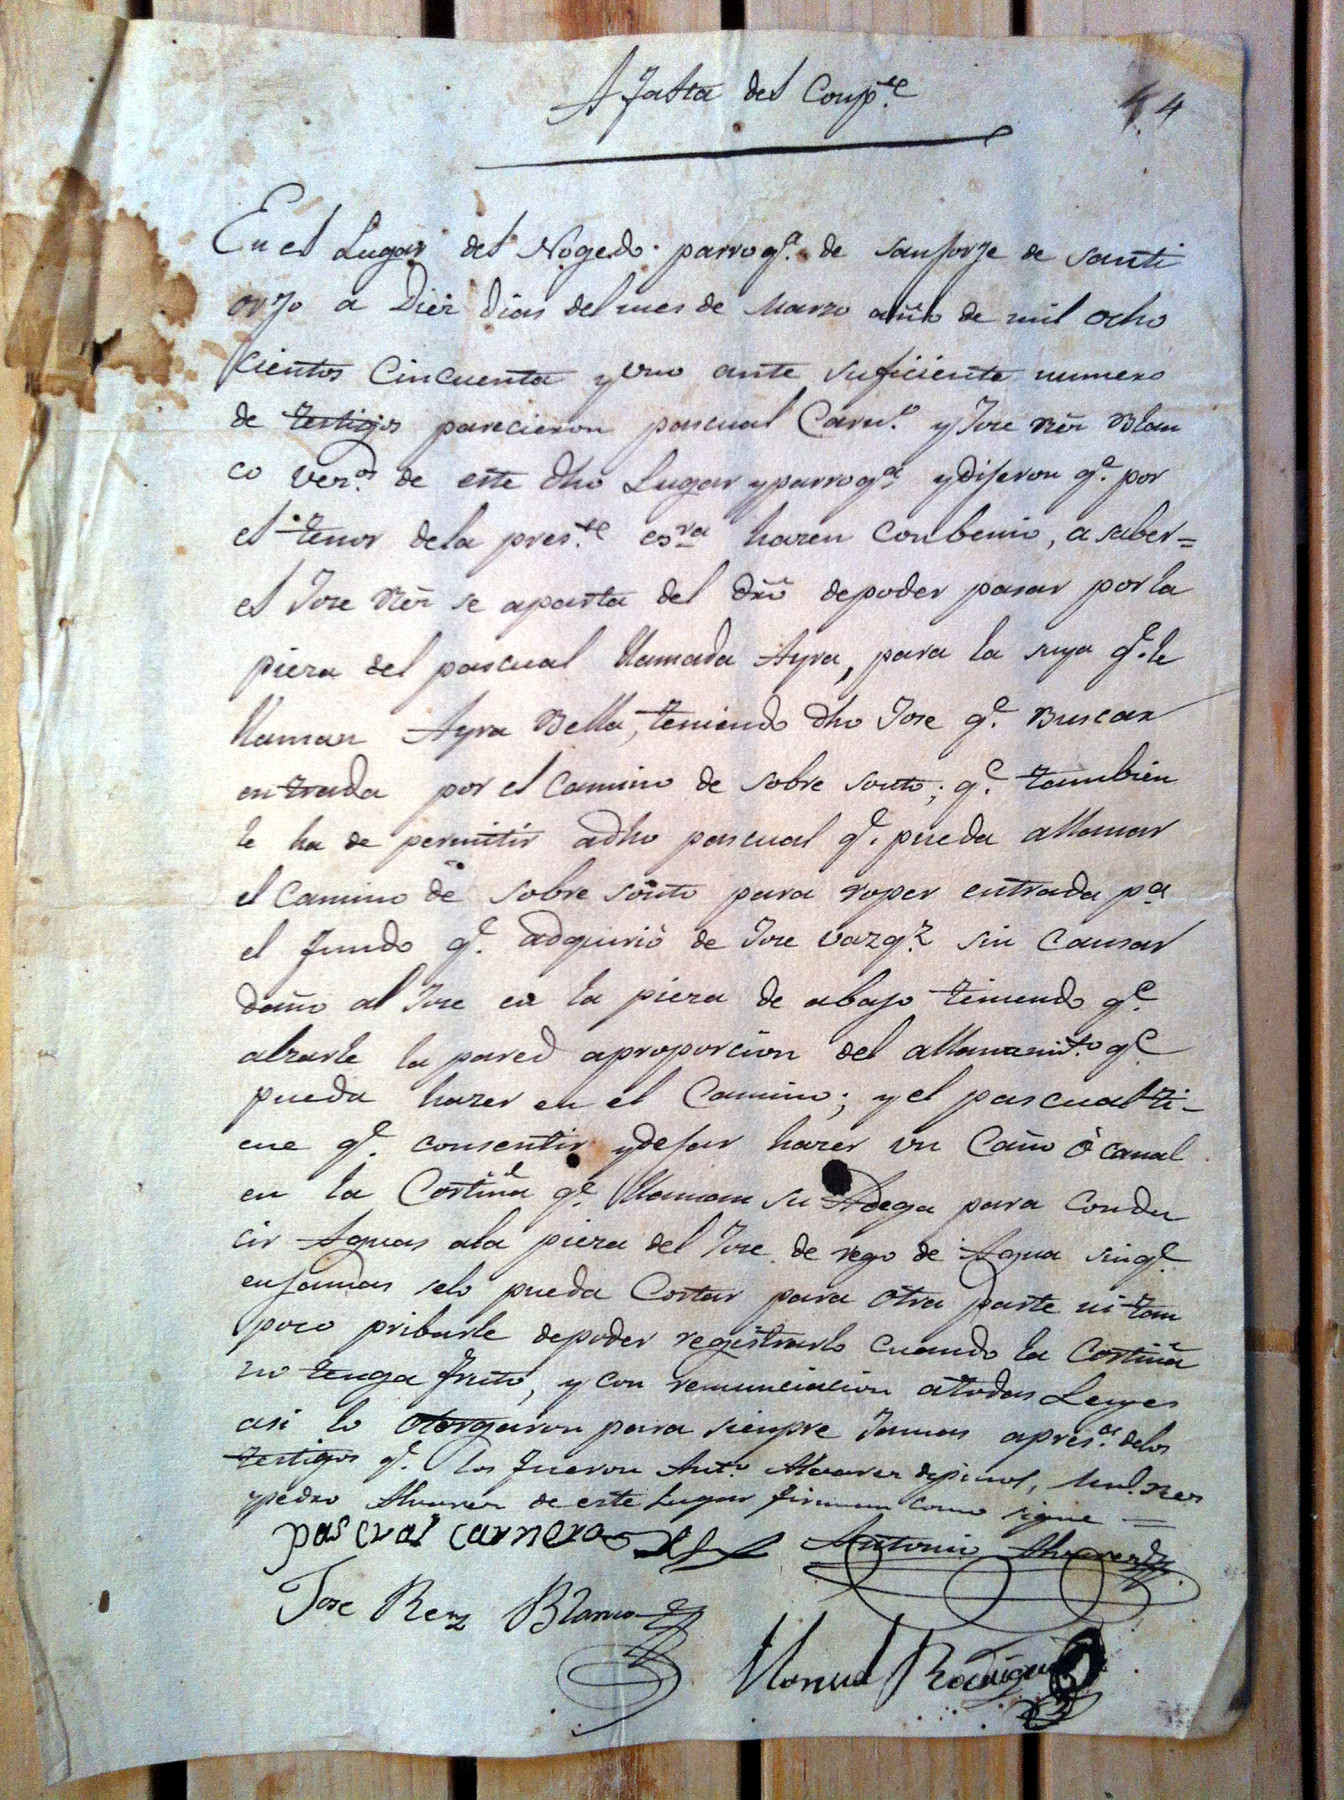 A falta del Comp.te
4 4
En el Lugar del Nogedo parroq.a de san Jorje de santi
orjo a Diez dias del mes de Marzo año de mil ocho
cientos cincuenta y uno ante suficiente numero
de testigos parecieron pascual Carn.o y Jose Rŕz Blan
co vez.os de este dho Lugar y parroq.a y dijeron q.e por
el tenor de la pres.te es.ra hazen conbenio, a saber =
el Jose Rŕz se aparta del dro de poder pasar por la
pieza del pascual llamada Ayra, para la suya q.e le
llaman Ayra Bella, teniendo dho Jose q.e Buscar
entrada por el camino de sobre souto; q.e tambien
le ha de permitir a dho pascual q.e pueda allanar
el camino de sobre souto para roper entrada p.a
el fundo q.e adquirió de Jose vazq.z sin causar
daño al Jose en la pieza de abajo teniendo q.e
alzarle la pared a proporcion del allanami.to q.e
pueda hazer en el Camino; y el pascual ti-
ene q.e consentir y dejar hazer un Caño ó canal
en la Cortiña q.e llaman su Adega para condu
cir Aguas a la pieza del Jose de rego de Agua sin q.e
en jamas selo pueda Cortar para otra parte ni tan
poco pribarle de poder registrarlo cuando la Cortiña
no tenga fruto, y con renunciacion a todas Leyes
asi lo otorgaron para sienpre Jamas a pres.a de los
testigos q.e los fueron Ant.o Alvarez de, Man.l Rez
y pedro Alvarez de este Lugar firman como sigue =
pascual carnero Antonio Alvarez
Jose Rez Blanco
Manuel Rodriguez